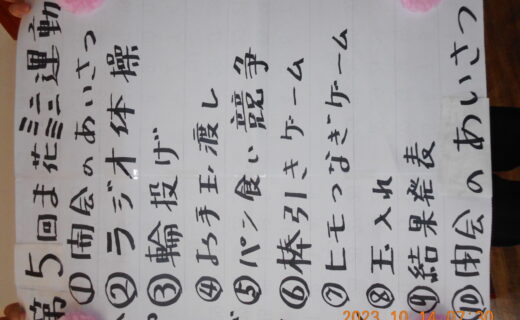 第5回ま花ミニミニ運動
①開会のあいさつ
②ラジオ体操
③輪投げ
④お手玉渡し
⑤パン食い競争
⑥棒引きゲーム
⑦ヒモつなぎゲーム
⑧玉入れ
⑨結果発表
⑩閉会のあいさつ
2023.10.14 07:30